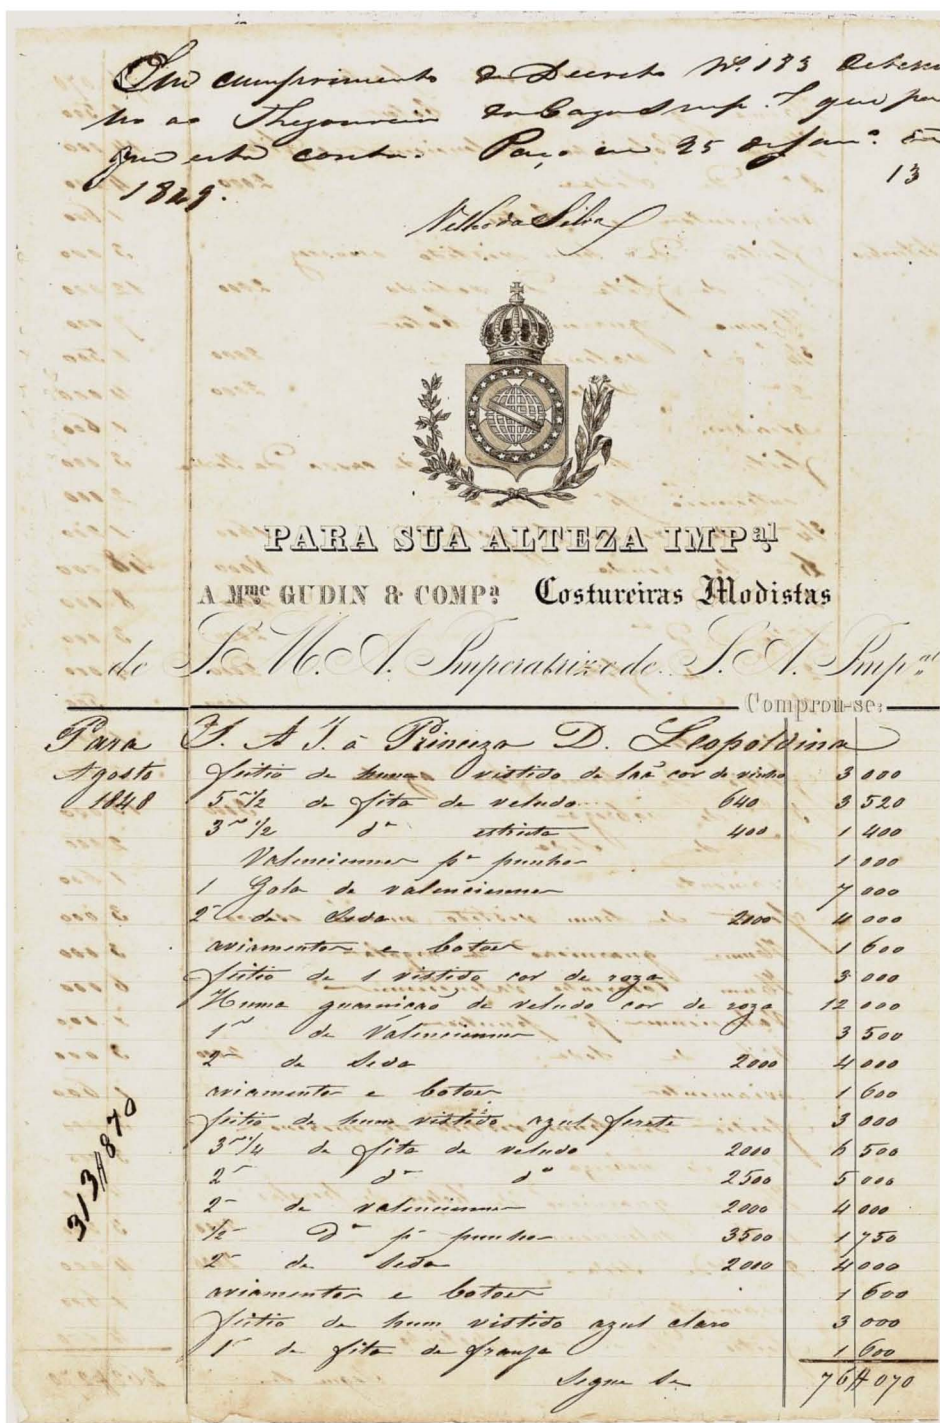 Em cumprimento do Decreto Nº 133 determi
no ao Thezoureiro da Caza Imp.l que pa
gue esta conta. Paço em 25 de Jan.o de
1849.
13
Velho da Silva
PARA SUA ALTEZA IMPal
A Mme GUDIN & COMPa Costureiras Modistas
de S. M. A. Imperatriz e de S. A. Impal
Comprou-se:
Para S. A I. a Princeza D. Leopoldina
Agosto feitio de hum vistido de lãa cor de vinho 3 000
1848 5 1/2 de fita de veludo 640 3 520
3 1/2 da estreita 400 1 400
Valenciennes pa punhos 1 000
1 Gola de valenciennes 7 000
2 de Seda 2000 4 000
aviamentos e botoes 1 600
feitio de 1 vistido cor de roza 3 000
Huma guarnicaõ de veludo cor de roza 12 000
1 de Valenciennes 3 500
2 de Seda 2000 4 000
aviamentos e botoes 1 600
feitio de hum vistido azul ferete 3 000
3 1/4 de fita de veludo 2000 6 500
2 da da 2500 5 000
2 de valenciennes 2000 4 000
1/2 Da pa punhos 3500 1 750
2 de Seda 2000 4 000
aviamentos e botoes 1 600
feitio de hum vistido azul claro 3 000
1 de fita de franja 1 600
Segue Se 76#070
313#870